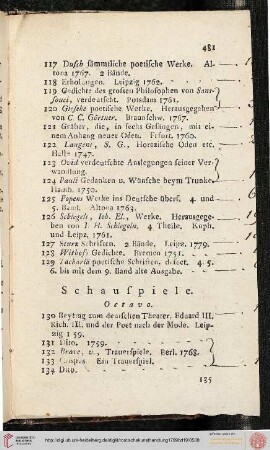 481
117 Dusch sämmtliche poetische Werke. Al-
tona 1767. 2 Bände.
118 Erholungen. Leipzig 1762.
119 Gedichte des grossen Philosophen von Sans-
souci, verdeutscht. Potsdam 1761.
120 Giseke poetische Werke, Herausgegeben
von C. C. Gärtner. Braunschw. 1767.
121 Gräber, die, in sechs Gesängen, mit ei-
nem Anhang neuer Oden. Frfurt. 1760.
122 Langens, S. G., Horazische Oden etc.
Halle 1747.
123 Ovid verdeutschte Auslegungen seiner Ver-
wandlung.
124 Pauli Gedanken u. Wünsche beym Trunke.
Hamb. 1750.
125 Popens Werke ins Deutsche übers. 4. und
5. Band. Altona 1763.
126 Schlegels, Joh. El., Werke. Herausgege-
ben von J. H. Schlegeln. 4 Theile. Koph.
und Leipz. 1761.
127 Schriften. 2 Bände, Leipz. 1779.
128 Withofs Gedichte. Bremen 1751.
129 Zachariä poetische Schriften, defect. 4. 5.
6. bis mit dem 9. Band alte Ausgabe.
Schauspiele.
Octavo.
130 Beytrag zum deutschen Theater. Eduard III.
Rich. III. und der Poet nach der Mode. Leip-
zig 1 59.
131 Dito. 1759.
132 Brave, v., Trauerspiele. Berl. 1768.
133 Ein Trauerspiel.
134 Dito.
135